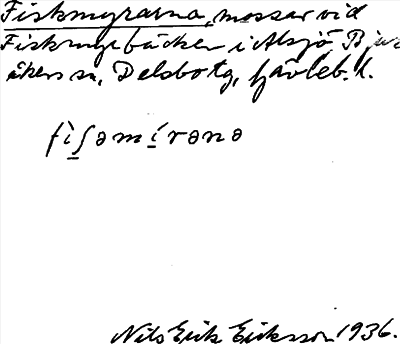 Fiskmyrarna, mossar vid
Fiskmyrbäcken i Alsjö, Bjur
åkers sn, Delsbo tg, Gävleb. l.
fiʃəmírənə
Nils Erik Eriksson 1936.